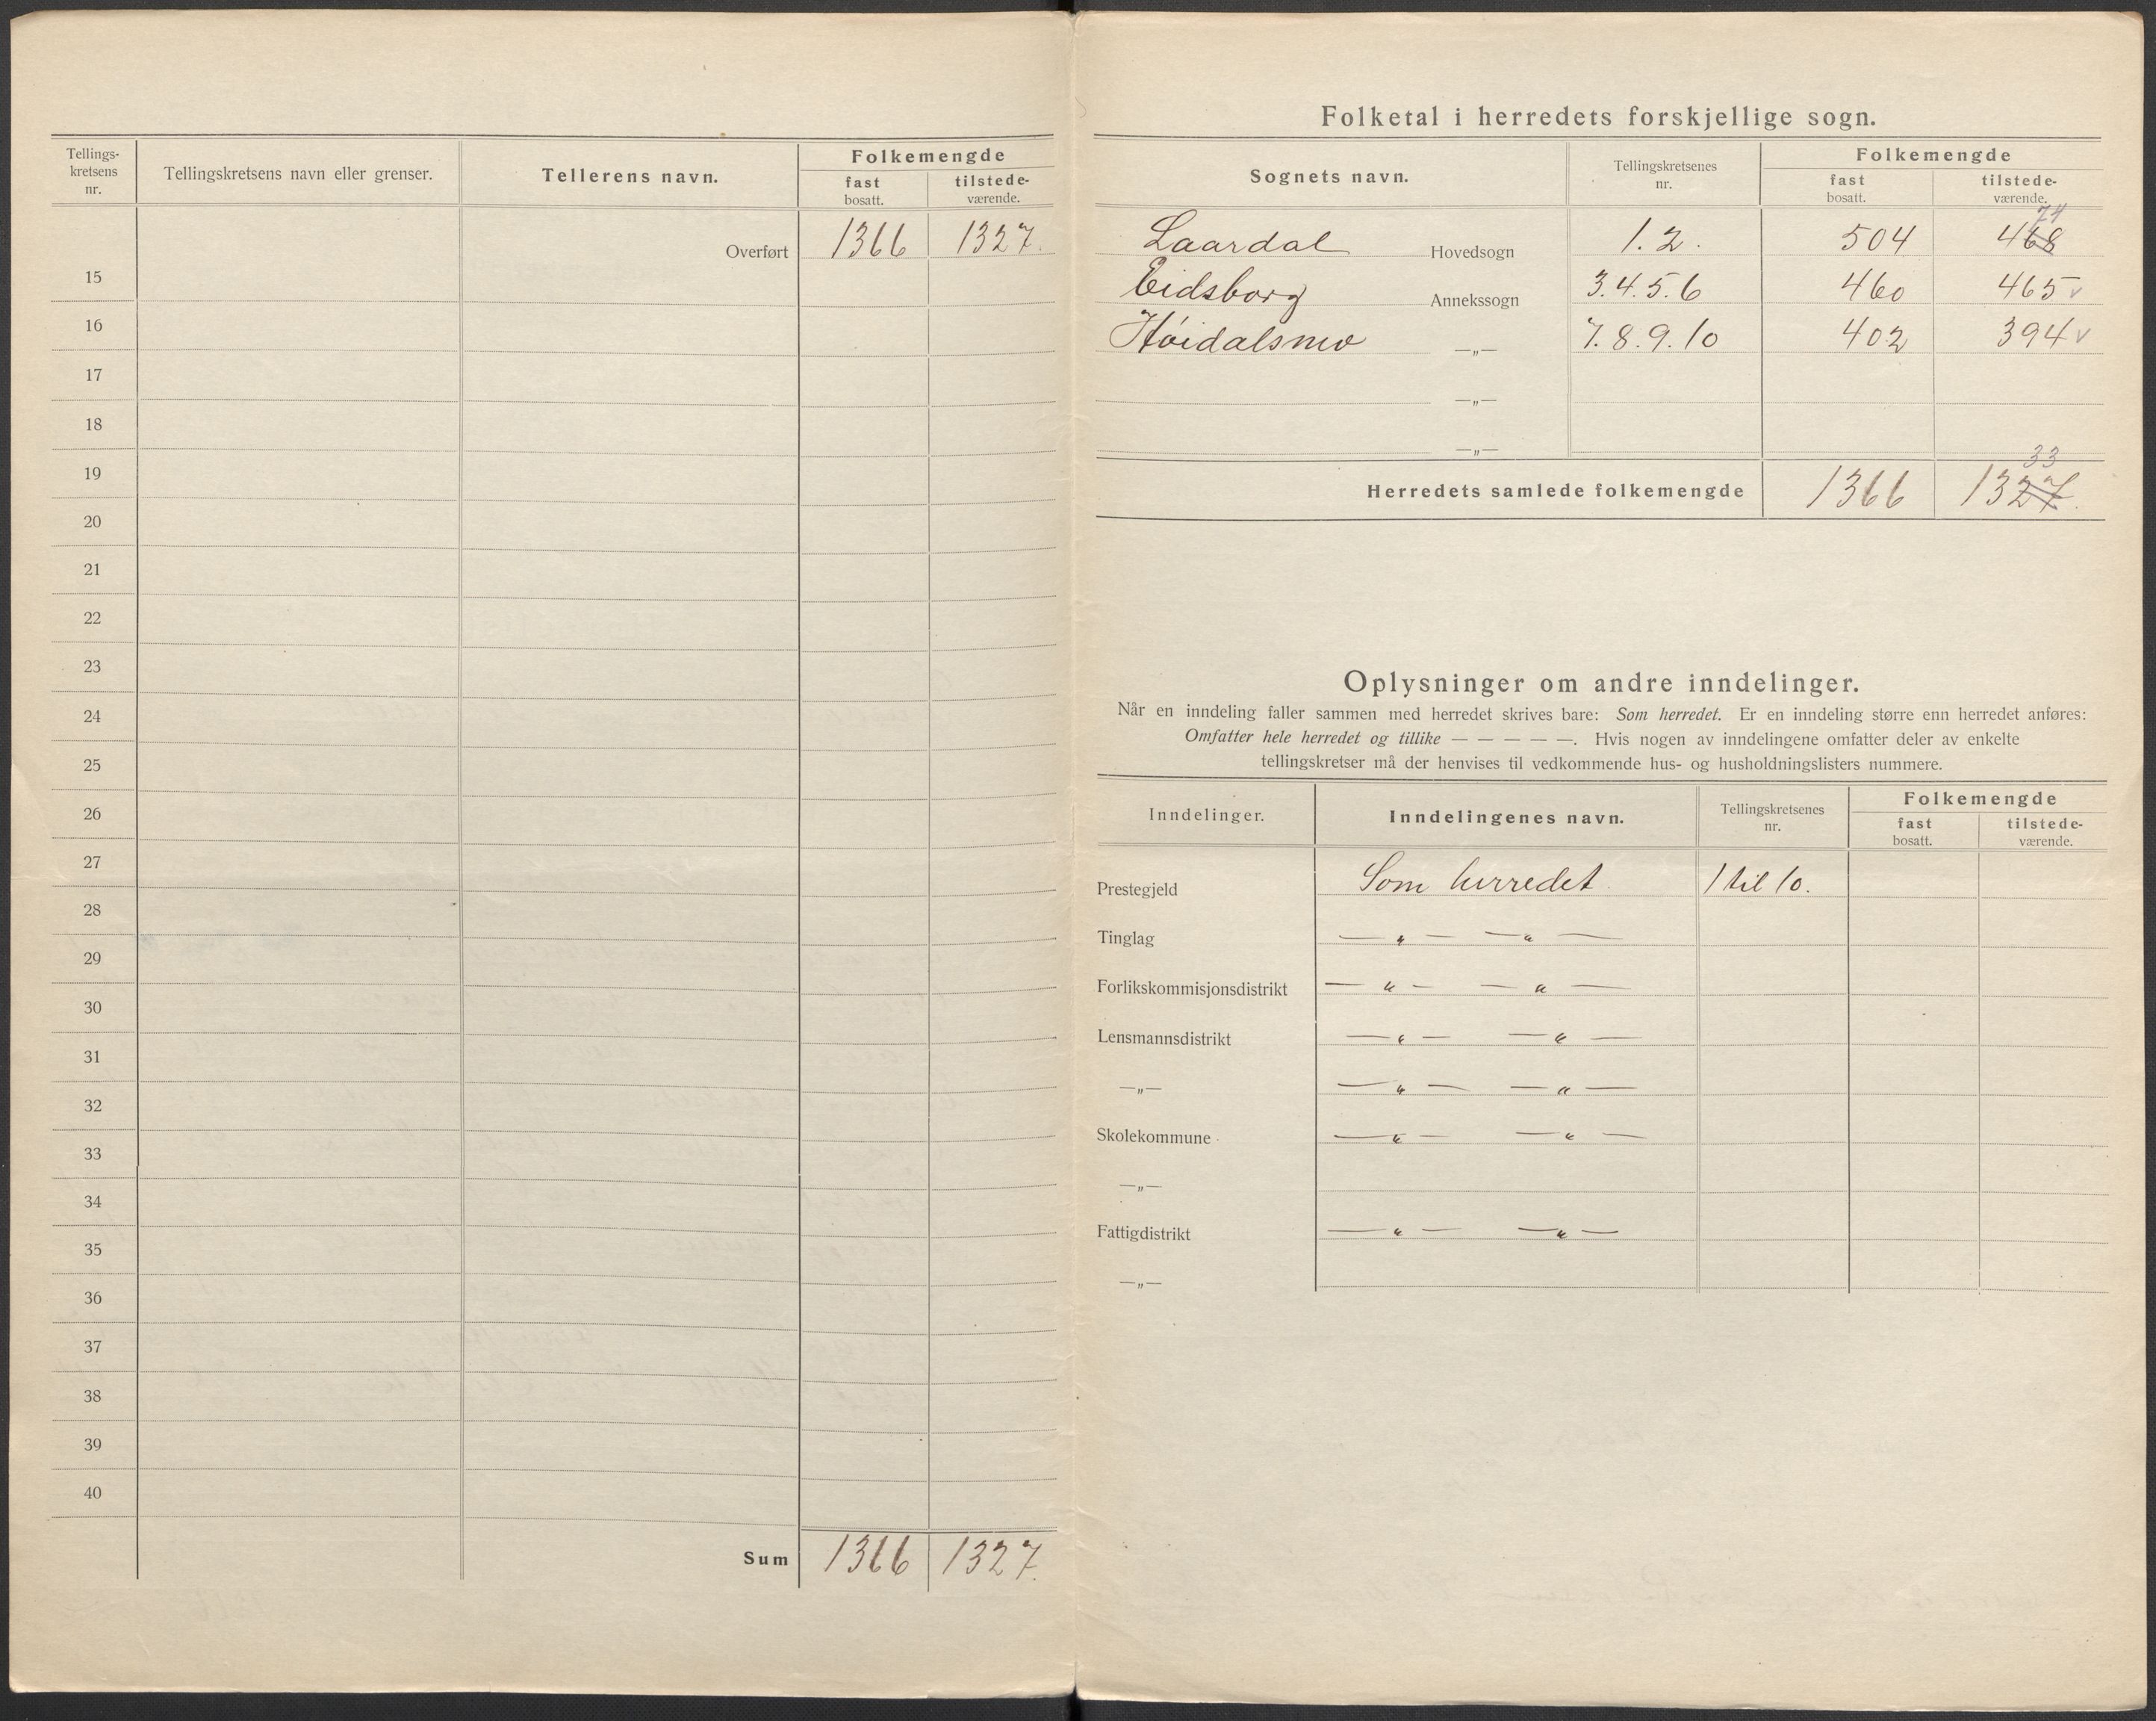 Tellings-
kretsens
nr.
Tellingskretsens navn eller grenser.
Tellerens navn.
Folkemengde
fast
bosatt.
tilstede-
værende.
Overført 1366 1327.
15
16
17
18
19
20
21
22
23
24
25
26
27
28
29
30
31
32
33
34
35
36
37
38
39
40
Sum 1366 1327.
Folketal i herredets forskjellige sogn.
Sognets navn.
Tellingskretsenes
nr.
Folkemengde
fast
bosatt.
tilstede-
værende.
74
Laardal Hovedsogn 1. 2. 504 468
Eidsborg Annekssogn 3. 4. 5. 6 460 465 v
Høidalsmo —„— 7. 8. 9. 10 402 394 v
—„—
—„—
33
Herredets samlede folkemengde 1366 1327.
Oplysninger om andre inndelinger.
Når en inndeling faller sammen med herredet skrives bare: Som herredet. Er en inndeling større enn herredet anføres:
Omfatter hele herredet og tillike — — — — —. Hvis nogen av inndelingene omfatter deler av enkelte
tellingskretser må der henvises til vedkommende hus- og husholdningslisters nummere.
Inndelinger.
Inndelingenes navn.
Tellingskretsenes
nr.
Folkemengde
fast
bosatt.
tilstede-
værende.
Prestegjeld Som herredet 1 til 10.
Tinglag —„— —„—
Forlikskommisjonsdistrikt —„— —„—
Lensmannsdistrikt —„— —„—
—„— —„— —„—
Skolekommune —„— —„—
—„—
Fattigdistrikt —„— —„—
—„—